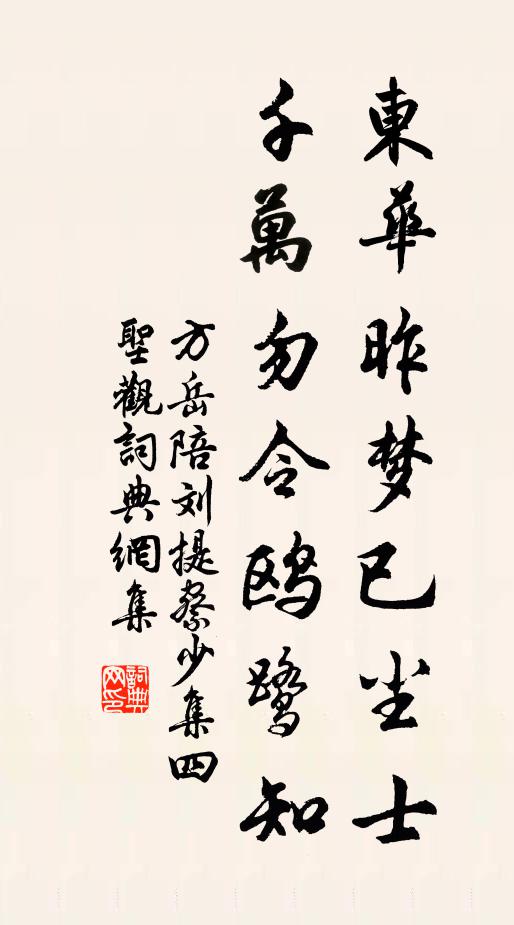 東華昨梦已尘士
千萬勿令鸥鹭知
方岳陪刘提祭少集四
聖觀詞典網集
詞典网印